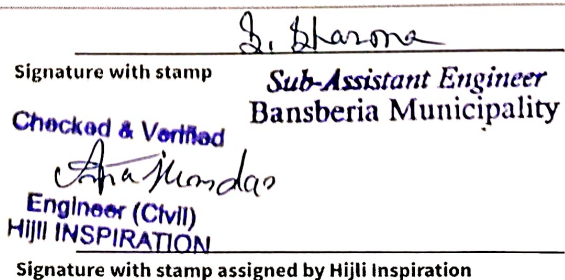 Signature with stamp
Sub-Assistant Engineer
Bansberia Municipality
Checked & Verified
Engineer (Civil)
Hijli INSPIRATION
Signature with stamp assigned by Hijli Inspiration